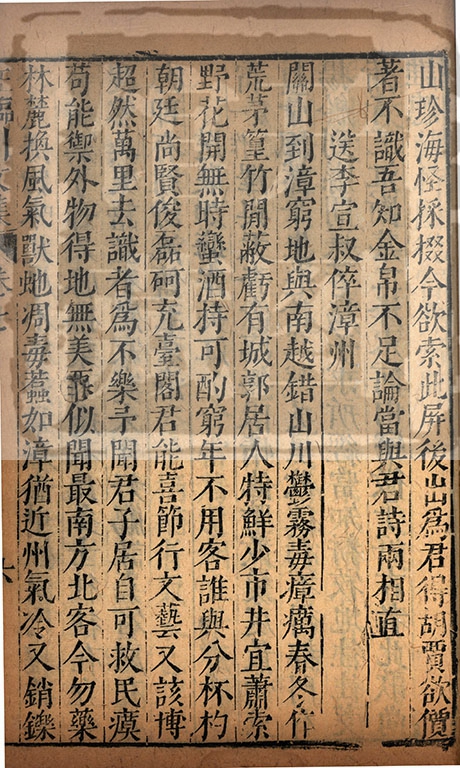 山珍海怪採掇今欲索此屏後出爲君得胡賈欲價
著不識吾知金帛不足論當與君詩兩相直
送李宣叔倅漳州
關山到漳窮地與南越錯山川鬱霧毒瘴癘春冬作
荒茅篁竹閒蔽虧有城郭居人特鮮少市井宜蕭索
野花開無時蠻酒持可酌窮年不用客誰與分杯杓
朝廷尚賢俊磊砢充臺閣君能喜節行文藝又該博
超然萬里去識者爲不樂予聞君子居自可救民瘼
苟能禦外物得地無美惡似聞最南方北客今勿藥
林麓換風氣獸虵凋毒蠚如漳猶近州氣冷又銷鑠